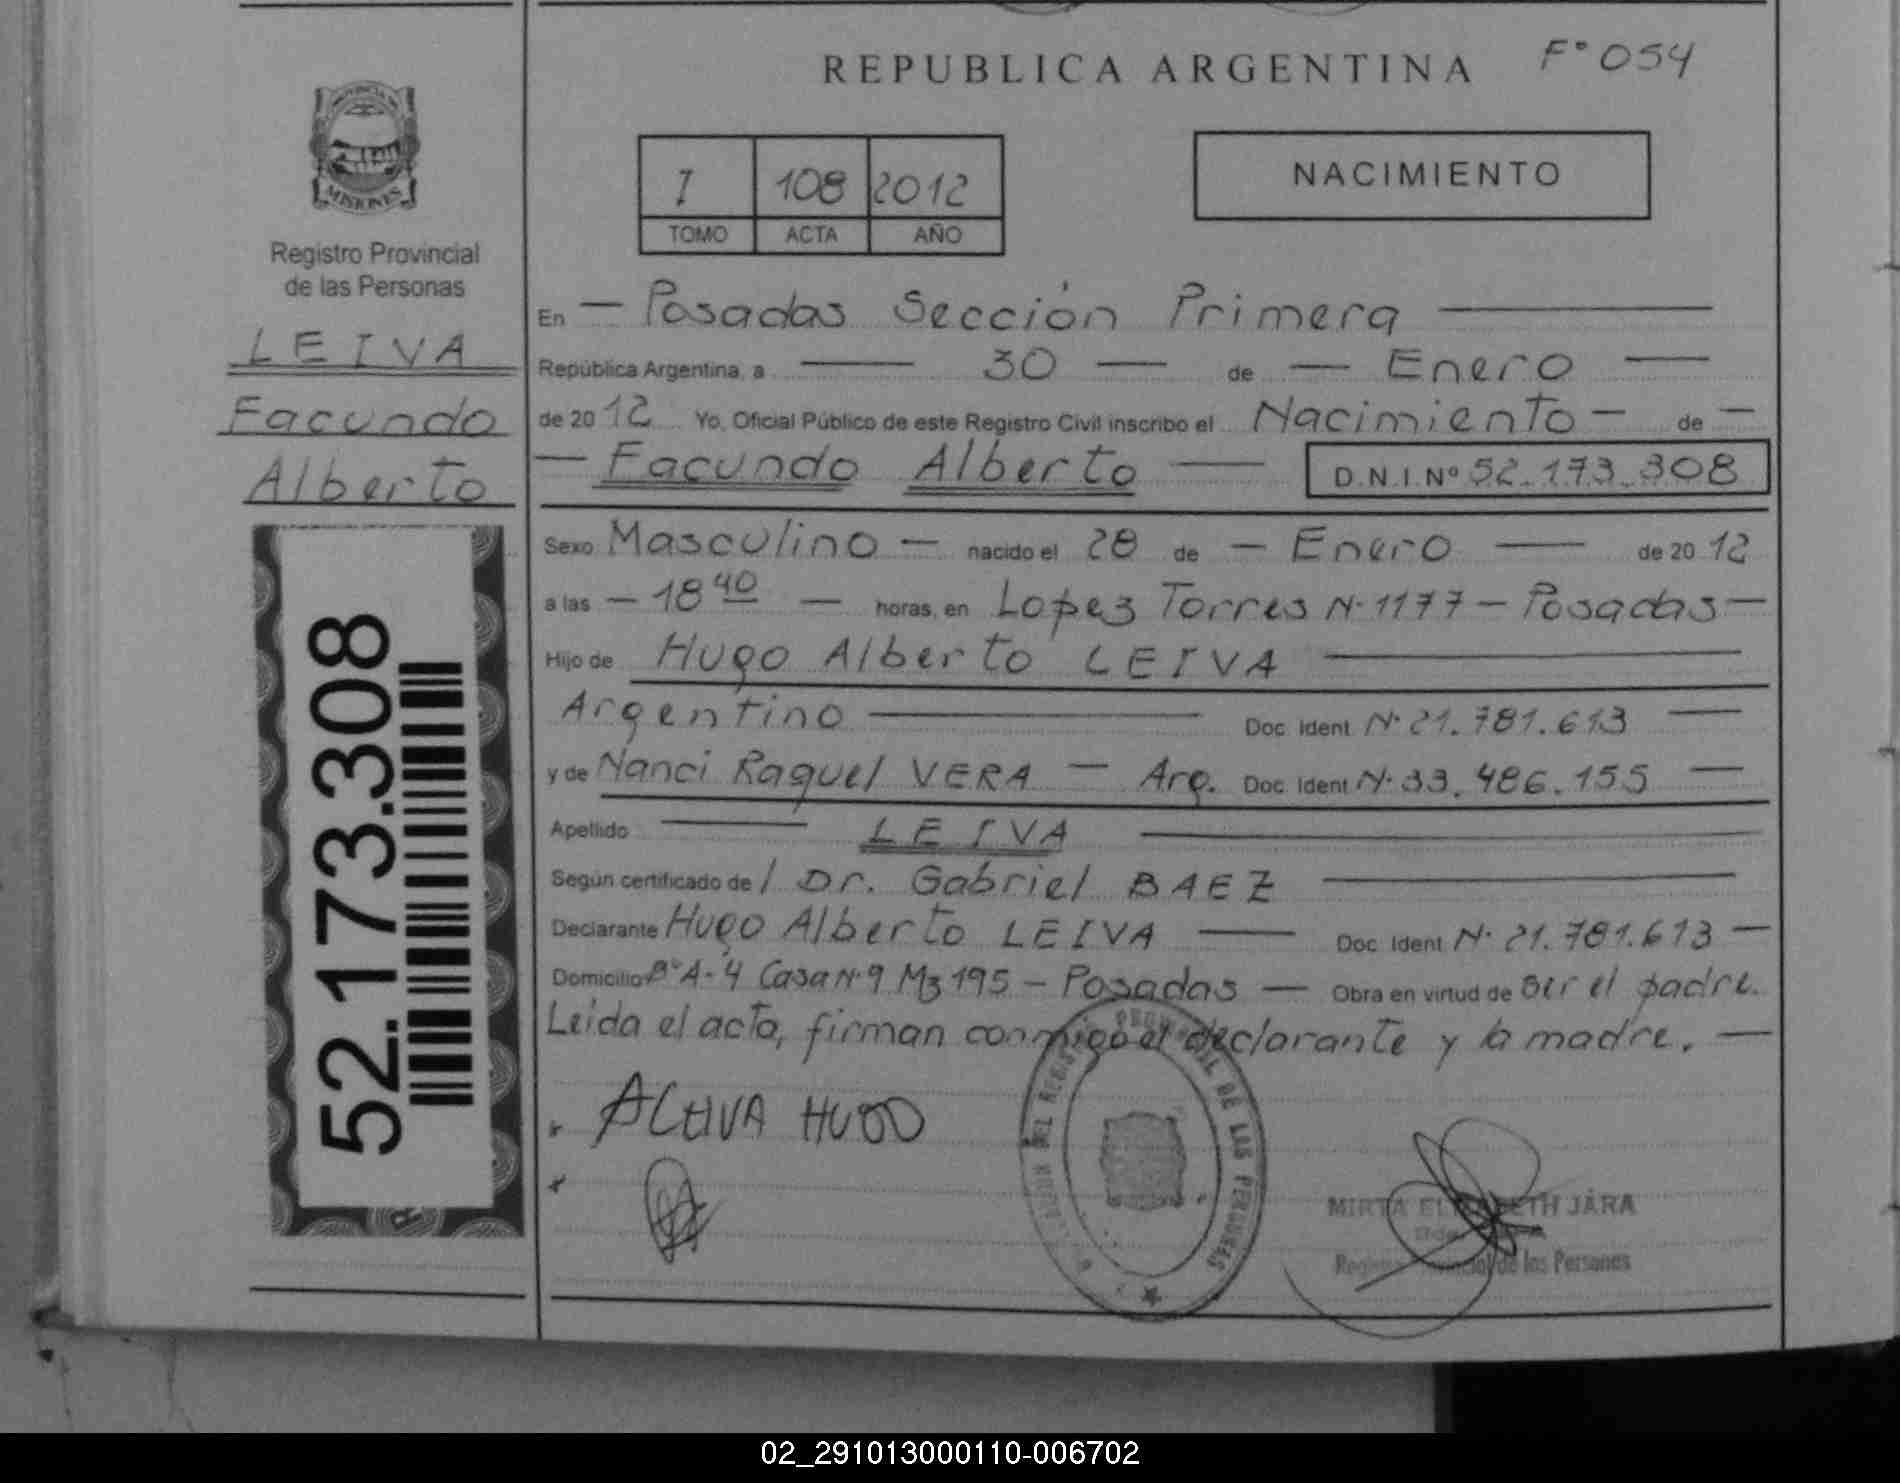 REPUBLICA ARGENTINA F° 054
PROVINCIA DE
MISIONES
Registro Provincial
de las Personas
LEIVA
Facundo
Alberto
52.173.308
I 108 2012
TOMO ACTA AÑO
NACIMIENTO
En — Posadas Sección Primera —
República Argentina, a — 30 — de — Enero —
de 2012 Yo, Oficial Público de este Registro Civil inscribo el Nacimiento — de —
— Facundo Alberto — D.N.I. Nº 52.173.308
Sexo Masculino — nacido el 28 de — Enero — de 2012
a las — 18 40 — horas, en Lopez Torres N· 1177 — Posadas —
Hijo de Hugo Alberto LEIVA —
Argentino — Doc. Ident. N· 21.781.613 —
y de Nanci Raquel VERA — Arg. Doc. Ident. N· 33.486.155 —
Apellido — LEIVA —
Según certificado de / Dr. Gabriel BAEZ —
Declarante Hugo Alberto LEIVA — Doc. Ident. N· 21.781.613 —
Domicilio B° A-4 Casa N· 9 Mz 195 — Posadas — Obra en virtud de ser el padre.
Leída el acta, firman conmigo el declarante y la madre. —
HUGO
DE LAS PERSONAS
MIRTA ELIZABETH JARA
Registro Provincial de las Personas
02_291013000110-006702